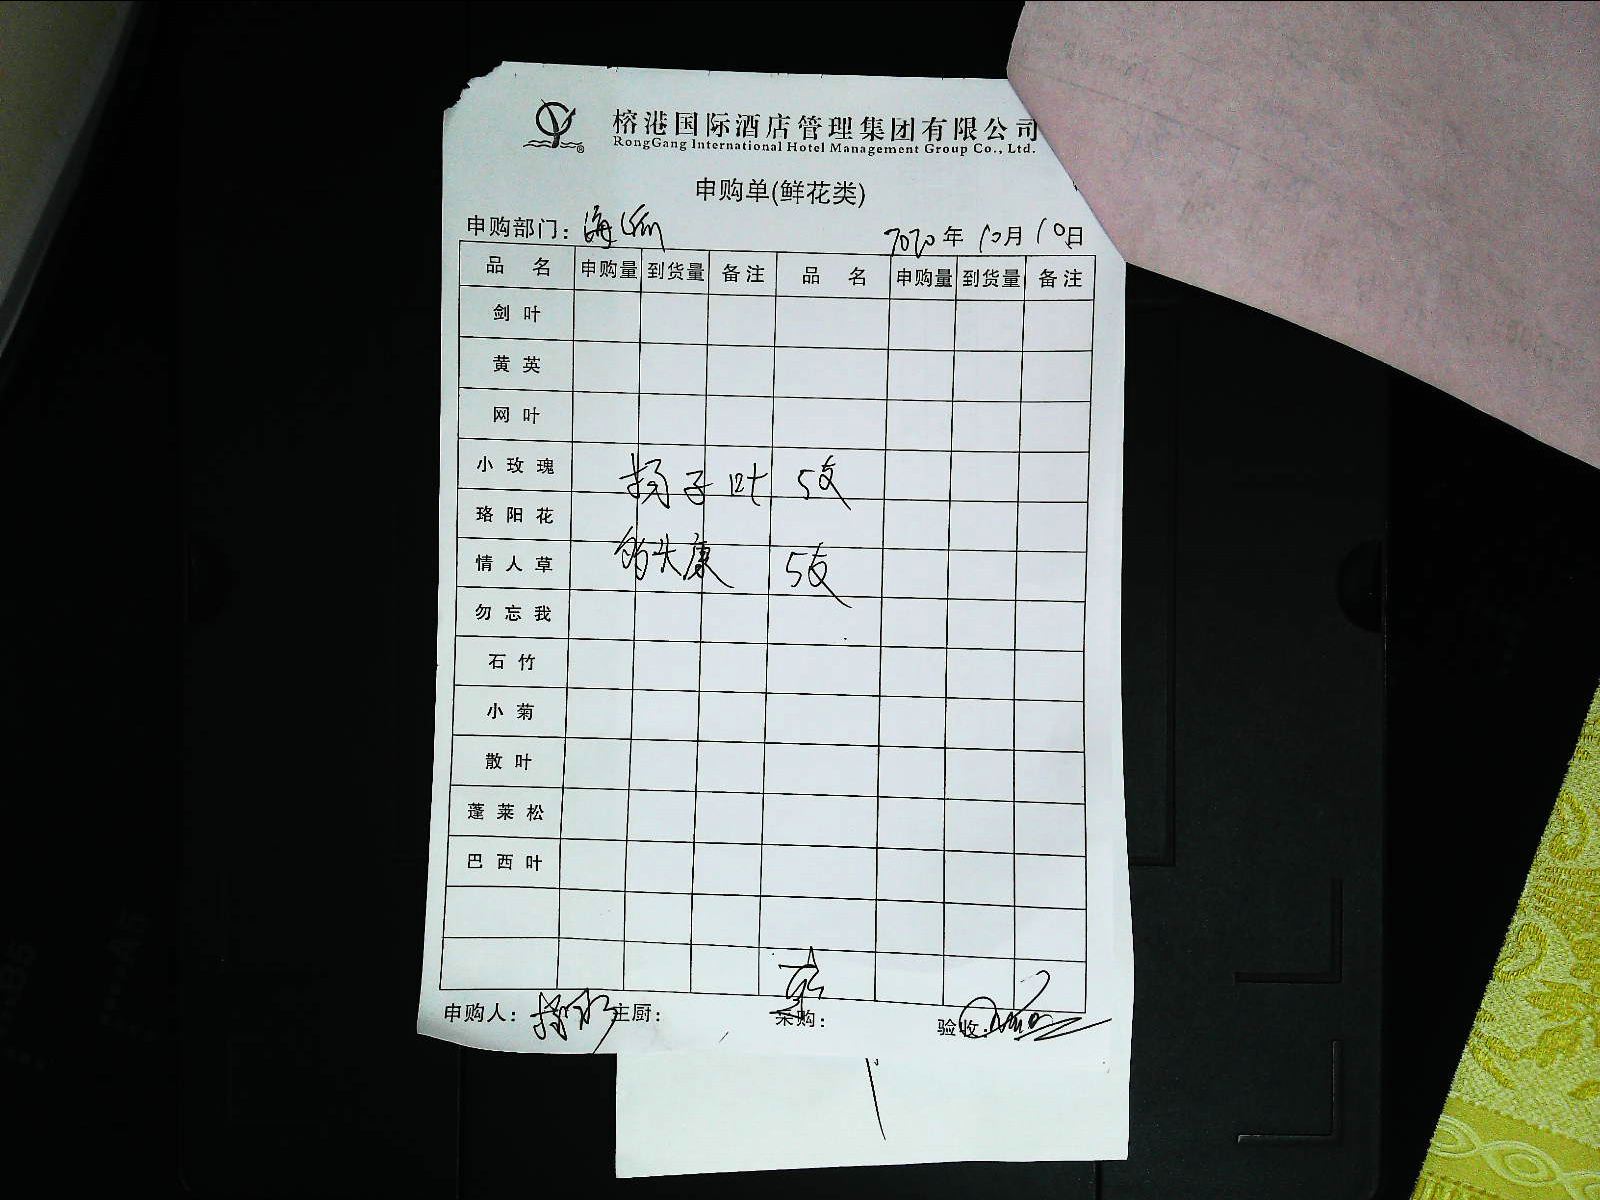 榕港国际酒店管理集团有限公司
RongGang International Hotel Management Group Co., Ltd.
申购单(鲜花类)
申购部门：海
2020年 10月 10日
品 名 申购量 到货量 备注 品 名 申购量 到货量 备注
剑 叶
黄 英
网 叶
小 玫 瑰
扬子叶 5支
珞 阳 花
情 人 草
5支
勿 忘 我
石 竹
小 菊
散 叶
蓬 莱 松
巴 西 叶
申购人： 主厨： 采购： 验收：